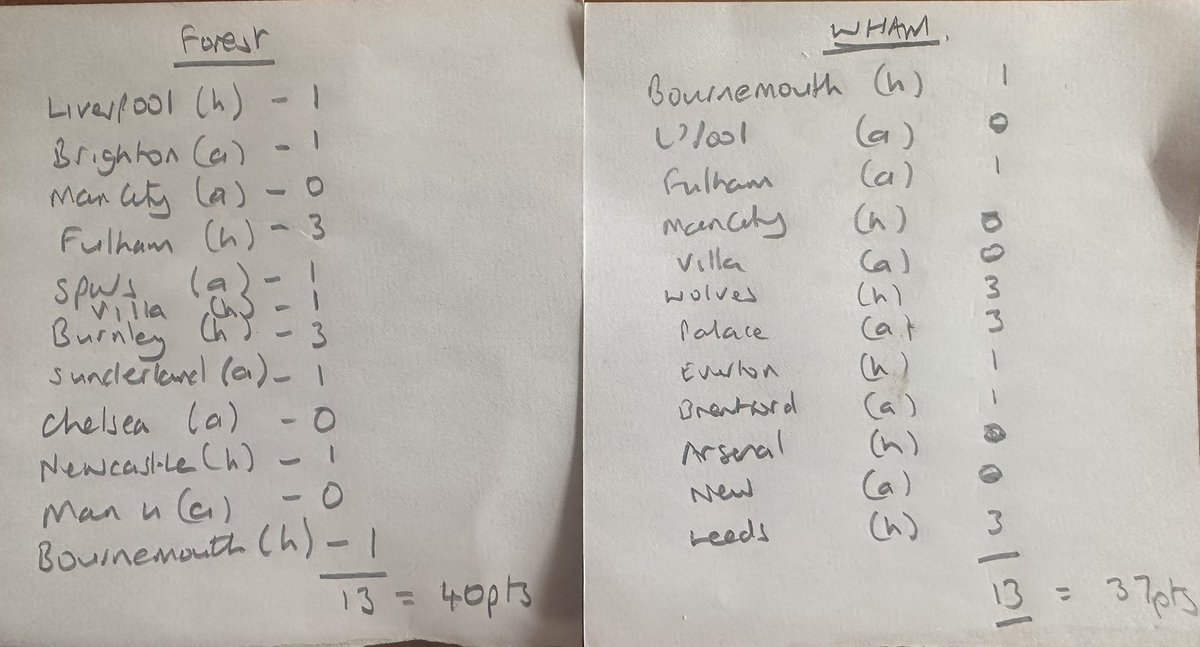 Forest
Liverpool (h) - 1
Brighton (a) - 1
Man City (a) - 0
Fulham (h) - 3
Spurs (a) - 1
Villa (h) - 1
Burnley (h) - 3
Sunderland (a) - 1
Chelsea (a) - 0
Newcastle (h) - 1
Man u (a) - 0
Bournemouth (h) - 1
13 = 40pts
WHAM.
Bournemouth (h) 1
L'pool (a) 0
Fulham (a) 1
Man City (h) 0
Villa (a) 0
Wolves (h) 3
Palace (a) 3
Everton (h) 1
Brentford (a) 1
Arsenal (h) 0
New (a) 0
Leeds (h) 3
13 = 37pts